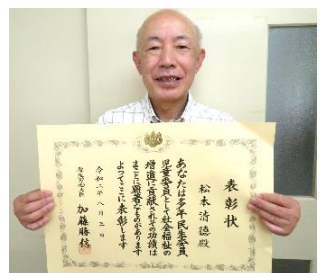 表彰状
松本清徳殿
あなたは多年民生委員
児童委員として社会福祉の
増進に貢献されその功績は
まことに顕著なものがあります
よってここに表彰します
令和二年八月三日
厚生労働大臣
加藤勝信